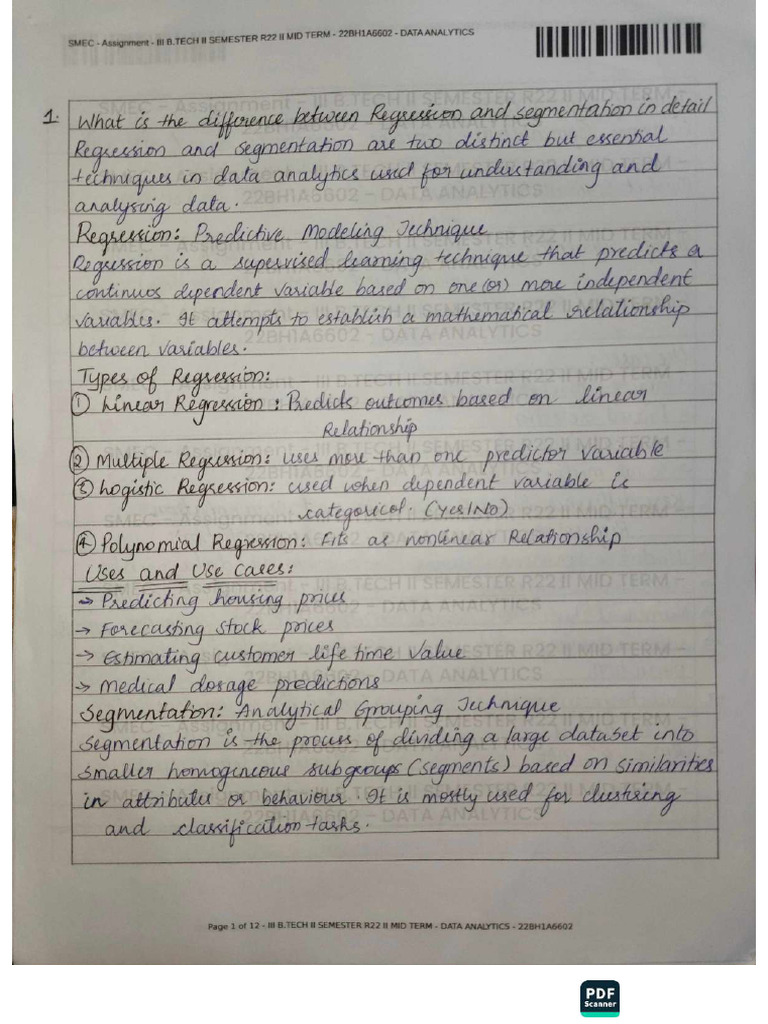 SMEC - Assignment - III B.TECH II SEMESTER R22 II MID TERM - 22BH1A6602 - DATA ANALYTICS
1. What is the difference between Regression and segmentation in detail
Regression and segmentation are two distinct but essential
techniques in data analytics used for understanding and
analysing data.
Regression: Predictive Modeling Technique
Regression is a supervised learning technique that predicts a
continuos dependent variable based on one (or) more independent
variables. It attempts to establish a mathematical relationship
between variables.
Types of Regression:
① Linear Regression: Predicts outcomes based on linear
Relationship
② Multiple Regression: uses more than one predictor variable
③ Logistic Regression: used when dependent variable is
categorical. (Yes/No)
④ Polynomial Regression: Fits as nonlinear Relationship
Uses and Use Cases:
→ Predicting housing prices
→ Forecasting stock prices
→ Estimating customer life time value
→ Medical dosage predictions
Segmentation: Analytical Grouping Technique
Segmentation is the process of dividing a large dataset into
smaller homogineous subgroups (segments) based on similarities
in attributes or behaviour. It is mostly used for clustering
and classification tasks.
Page 1 of 12 - III B.TECH II SEMESTER R22 II MID TERM - DATA ANALYTICS - 22BH1A6602
PDF
Scanner